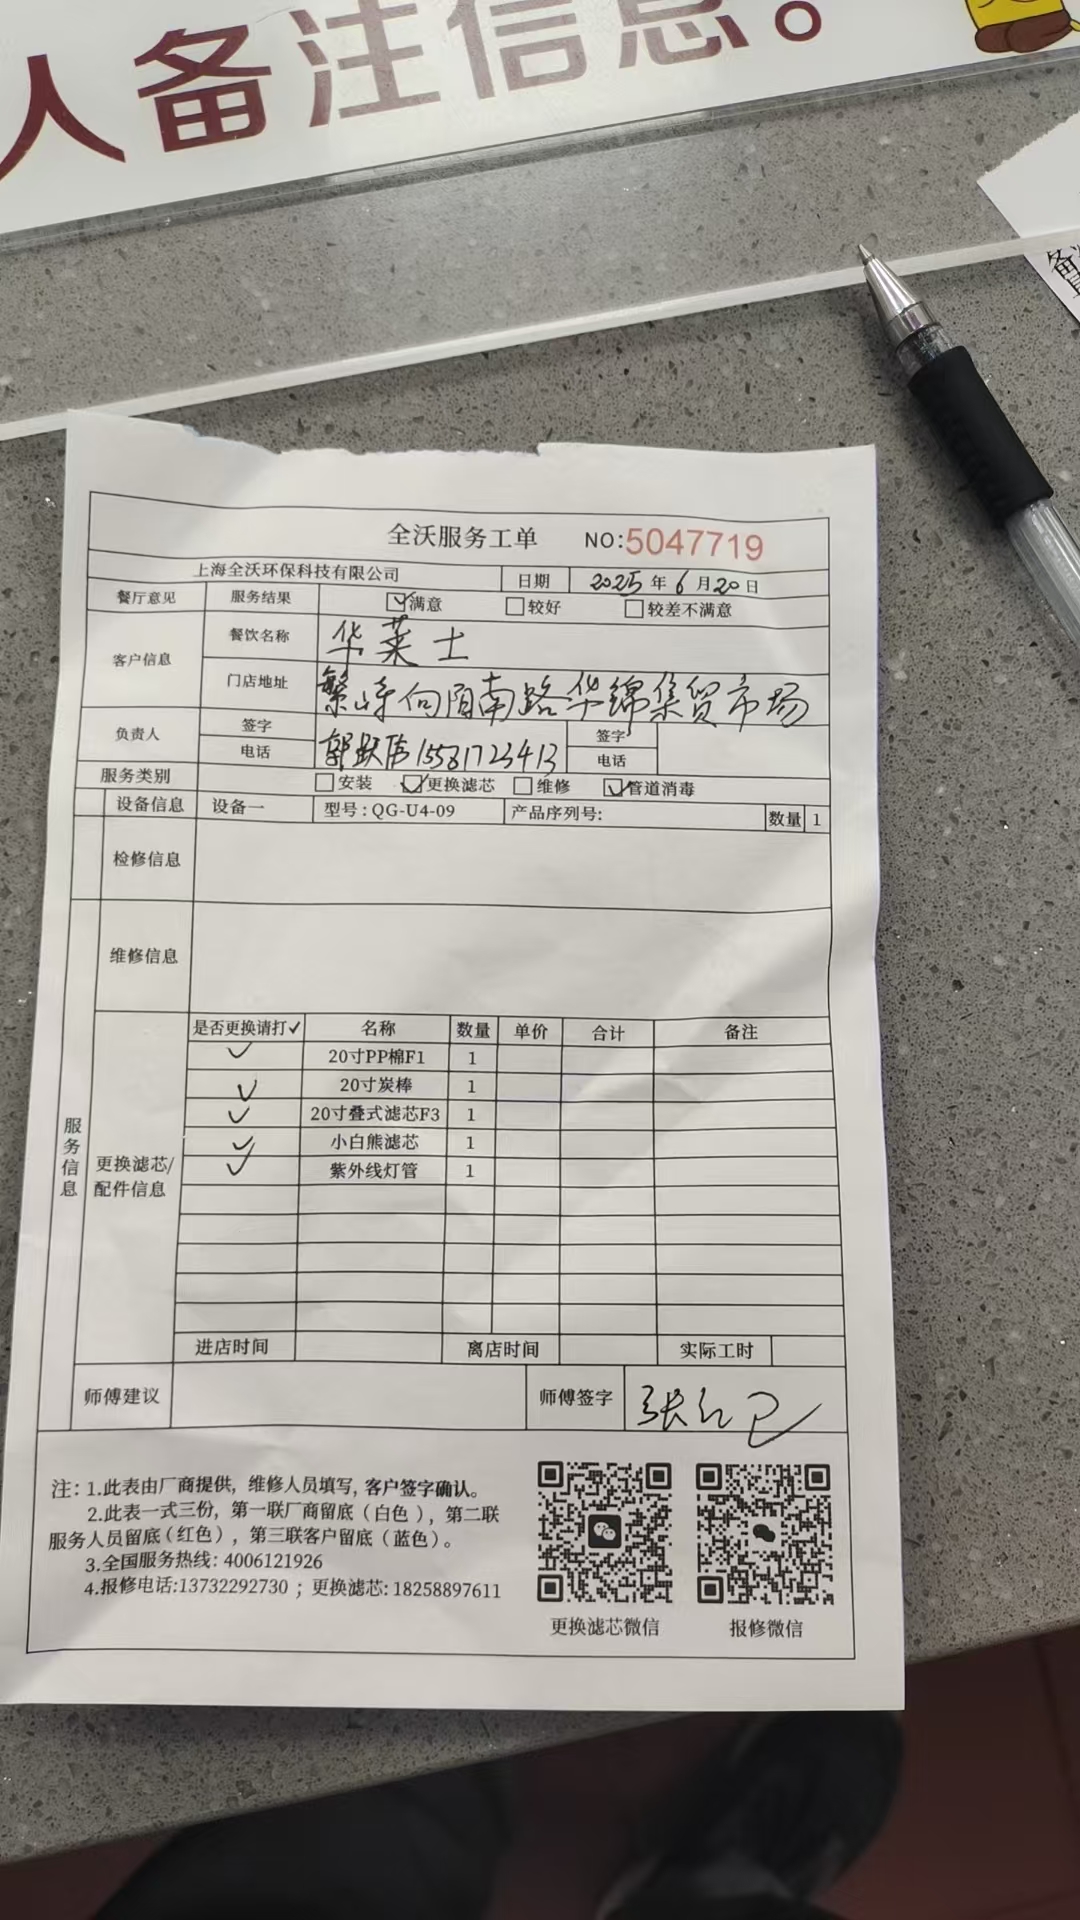 人备注信息。
全沃服务工单 NO:5047719
上海全沃环保科技有限公司 日期 2025年6月20日
餐厅意见 服务结果 满意 较好 较差不满意
客户信息 餐饮名称 华莱士
门店地址 繁峙向阳南路华锦集贸市场
负责人 签字 签字
电话 15581723413 电话
服务类别 安装 更换滤芯 维修 管道消毒
设备信息 设备一 型号:QG-U4-09 产品序列号: 数量 1
检修信息
维修信息
服务信息
更换滤芯/
配件信息
是否更换请打✓ 名称 数量 单价 合计 备注
✓ 20寸PP棉F1 1
✓ 20寸炭棒 1
✓ 20寸叠式滤芯F3 1
✓ 小白熊滤芯 1
✓ 紫外线灯管 1
进店时间 离店时间 实际工时
师傅建议 师傅签字
注:1.此表由厂商提供,维修人员填写,客户签字确认。
2.此表一式三份,第一联厂商留底(白色),第二联
服务人员留底(红色),第三联客户留底(蓝色)。
3.全国服务热线:4006121926
4.报修电话:13732292730;更换滤芯:18258897611
更换滤芯微信 报修微信